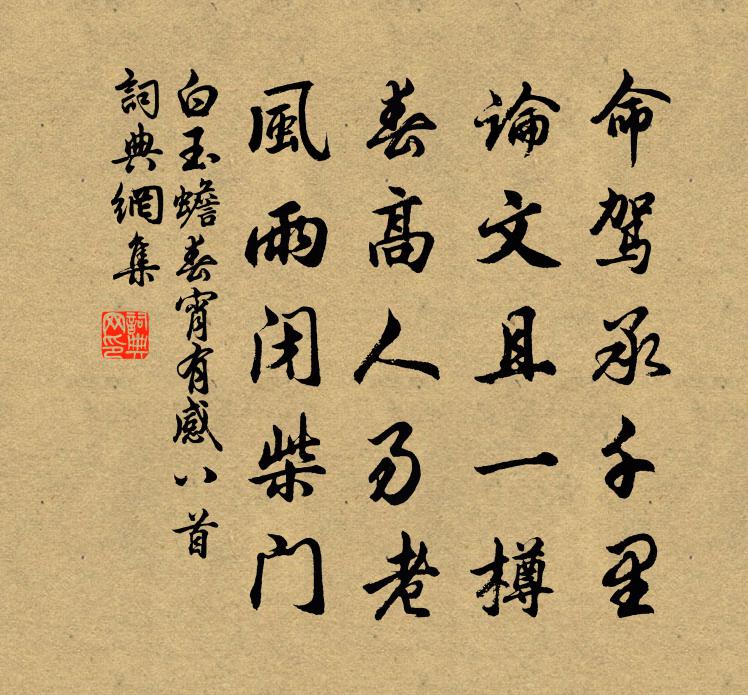 命駕承千里
論文且一樽
春高人易老
風雨闭柴门
白玉蟾春宵有感八首
詞典網集
詞典网印